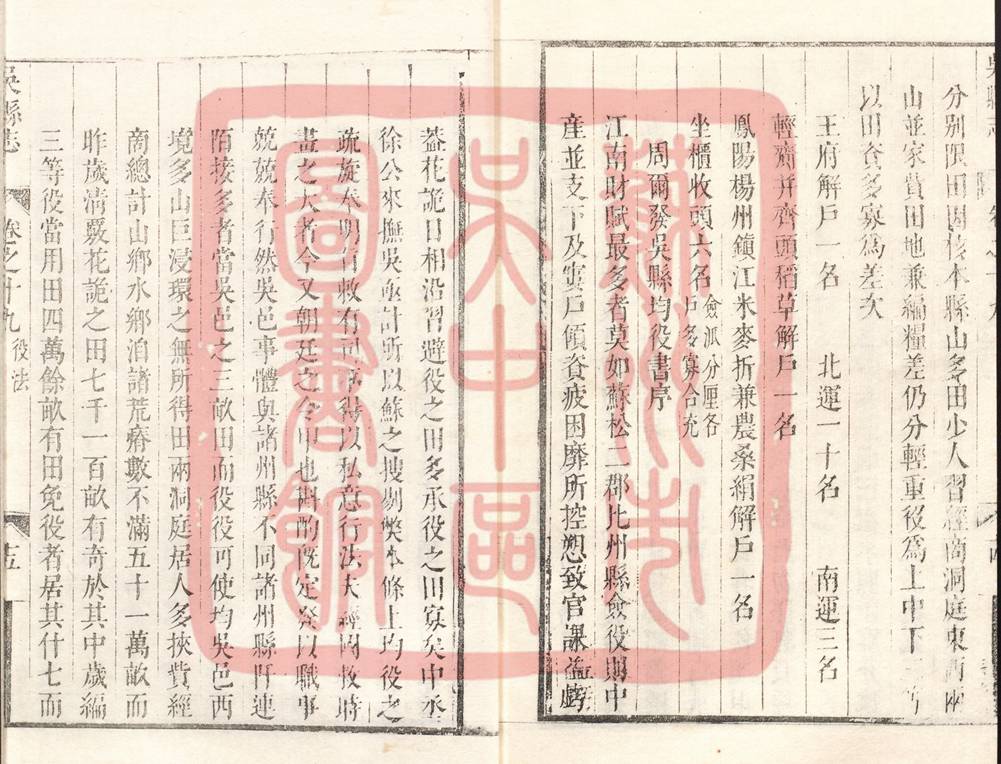 分別限田因核本縣山多田少人習經商洞庭東西兩
山並家貲田地兼編糧差仍分輕重役為上中下三等
以田貲多寡為差次
王府解戶一名 北運一十名 南運三名
輕齎并齊頭稻草解戶一名
鳳陽楊州鎮江米麥折兼農桑絹解戶一名
坐櫃收頭六名 僉派分厘各
戶多寡合充
周爾發吳縣均役書序
江南財賦最多者莫如蘇松二郡比州縣僉役則中
產並支下及寠戶傾資疲困靡所控愬致官課益虧
蓋花詭日相沿習避役之田多承役之田寡矣中丞
徐公來撫吳亟計所以蘇之搜剔獘本條上均役之
疏旋奉明旨敕有司毋得以私意行法夫經國救時
畫之大者今又朝廷之令甲也斟酌既定發以職事
兢兢奉行然吳邑事體與諸州縣不同諸州縣阡連
陌接多者當吳邑之三畝田而役役可使均吳邑西
境多山巨浸環之無所得田兩洞庭居人多挾貲經
商總計山鄉水鄉洎諸荒瘠數不滿五十一萬畝而
昨歲清覈花詭之田七千一百畝有奇於其中歲編
三等役當用田四萬餘畝有田免役者居其什七而
吳縣志 卷之十九 役法 十五